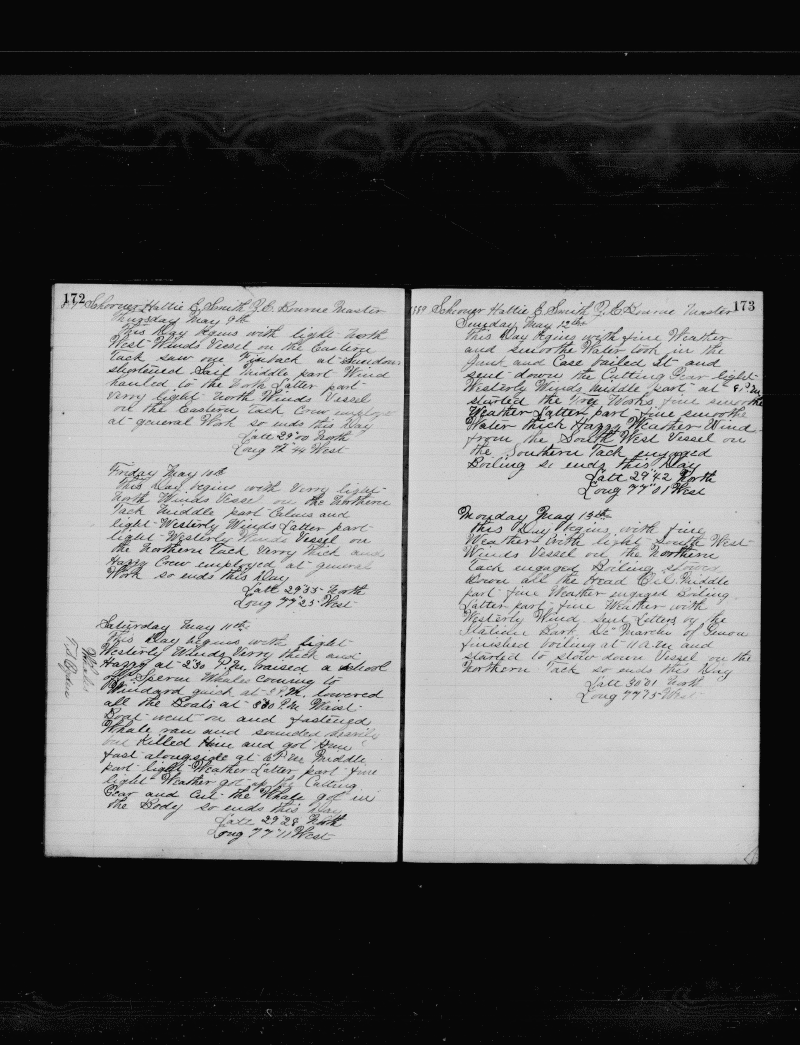 172
Schooner Hattie E Smith Z.E. Bourne Master
Thursday May 9th
This Day begins with light North
West Winds Vessel on the Eastern
Tack saw one Finback at Sundown
shortened Sail Middle part Wind
hauled to the North Latter part
Verry light North Winds Vessel
on the Eastern Tack Crew employed
at general Work so ends this Day
Latt 29"00 North
Long West
Friday May 10th
This Day begins with Verry light
North Winds Vessel on the Northern
Tack Middle part Calms and
light Westerly Winds Latter part
light Westerly Winds Vessel on
the Northern Tack Verry thick and
Hazzy Crew employed at general
Work so ends this Day
Latt 29"35 North
Long 77"25 West
Saturday May 11th
This Day begins with light
Westerly Winds Verry thick and
Hazzy at 2.30 P.M. raised a school
of Sperm Whales coming to
Windard quick at P.M. lowered
all the Boats at P.M. Waist
Boat went on and fastened
Whale ran and sounded
but Killed Him and got Him
fast alongside at 6 P.M. Middle
part light Weather Latter part fine
light Weather got up the Cutting
Gear and Cut the Whale got in
the Body so ends this Day
Latt 29"28 North
Long 77"11 West
Whales
173
1889 Schooner Hattie E Smith Z.E. Bourne Master
Sunday May 12th
This Day begins with fine Weather
and smoothe Water took in the
Junk and Case bailed It and
sent down the Cutting Gear light
Westerly Winds middle part at 8 P.M.
started the Try Works fine smoothe
Weather Latter part fine smoothe
Water thick Hazzy Weather Wind
from the South West Vessel on
the Southern Tack engaged
Boiling so ends this Day
Latt 29"42 North
Long 77"01 West
Monday May 13th
this Day begins with fine
Weather with light South West
Winds Vessel on the Northern
Tack engaged Boiling stowed
down all the Head Oil Middle
part fine Weather engaged Boiling
Latter part fine Weather with
Westerly Wind sent Letters by the
Italian Bark of Genoa
finished boiling at 11 A.M. and
started to stow down Vessel on the
Northern Tack so ends this Day
Latt 30"01 North
Long West